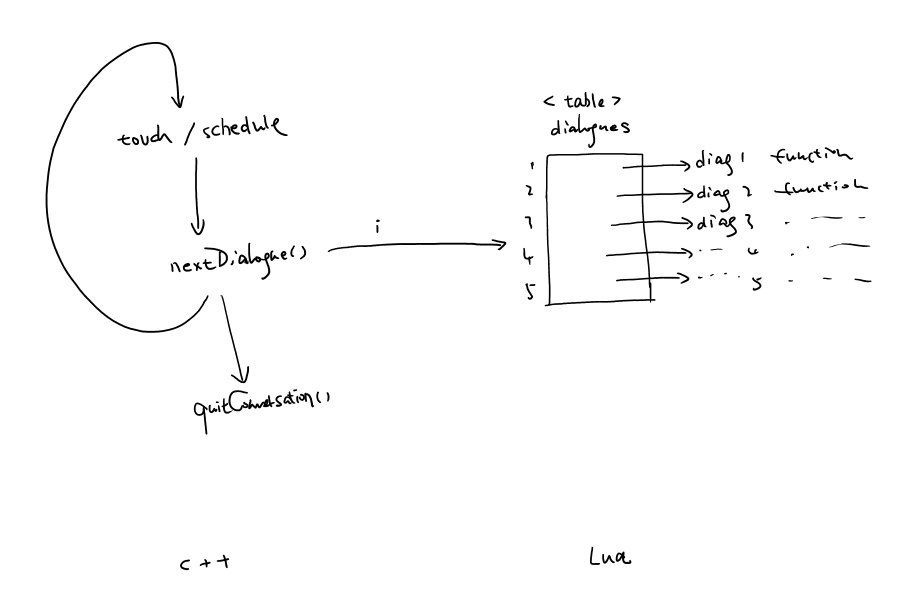 touch / schedule
nextDialogue()
quitConversation()
C++
i
< table >
dialogues
1 diag 1 function
2 diag 2 function
3 diag 3
4 4
5 5
Lua